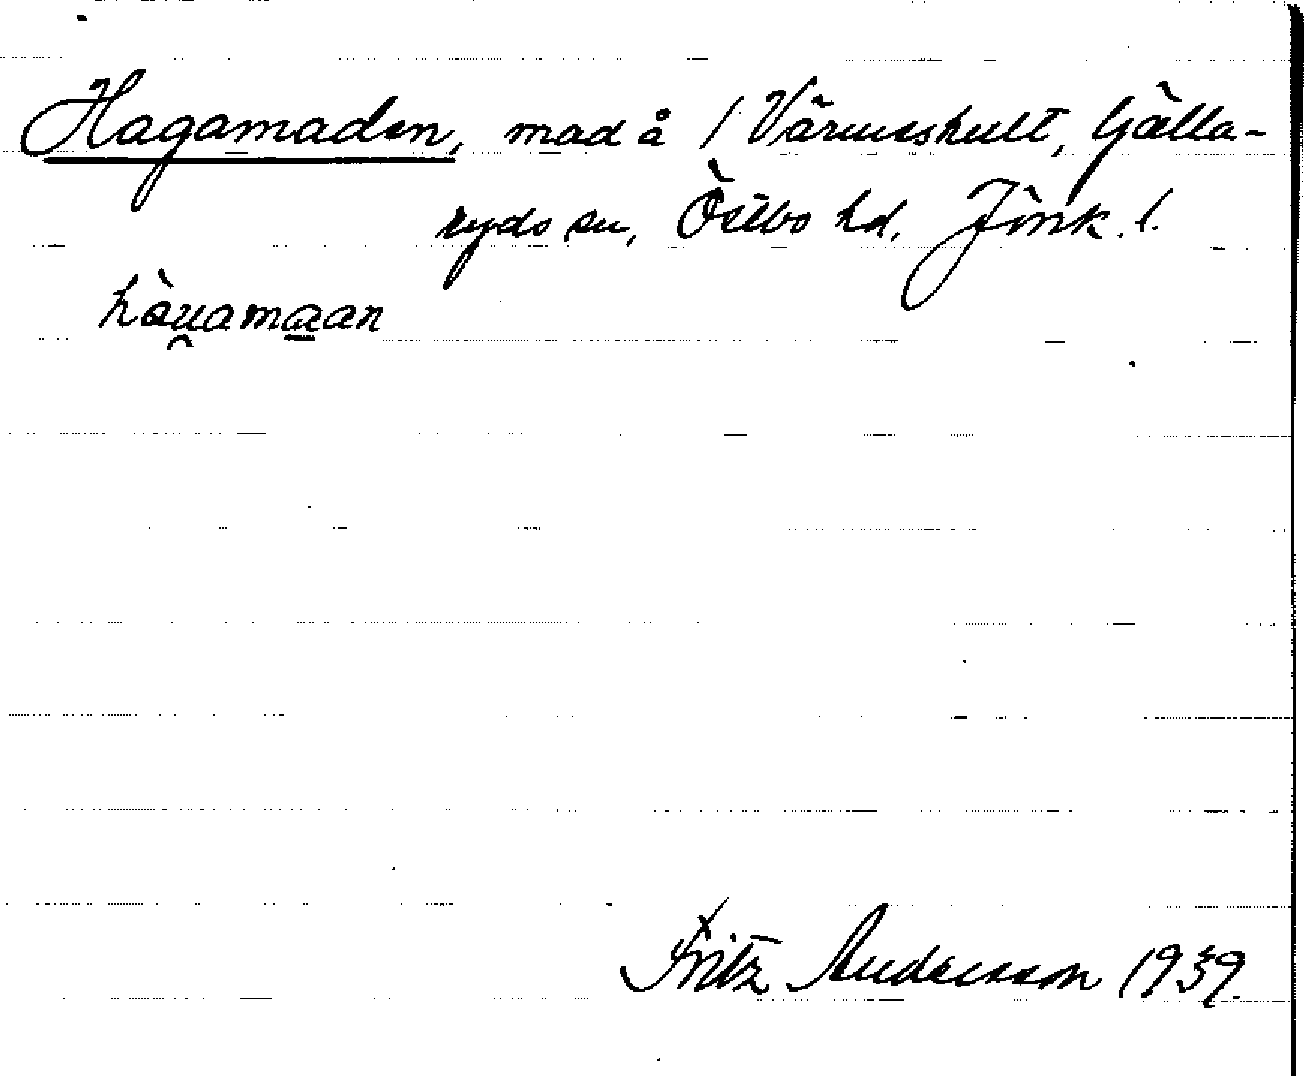 Hagamaden, mad å 1 Värmeshult, Gälla-
ryds sn, Östbo hd, Jönk. l.
hàu̯ama̠an
Fritz Andersson 1939.